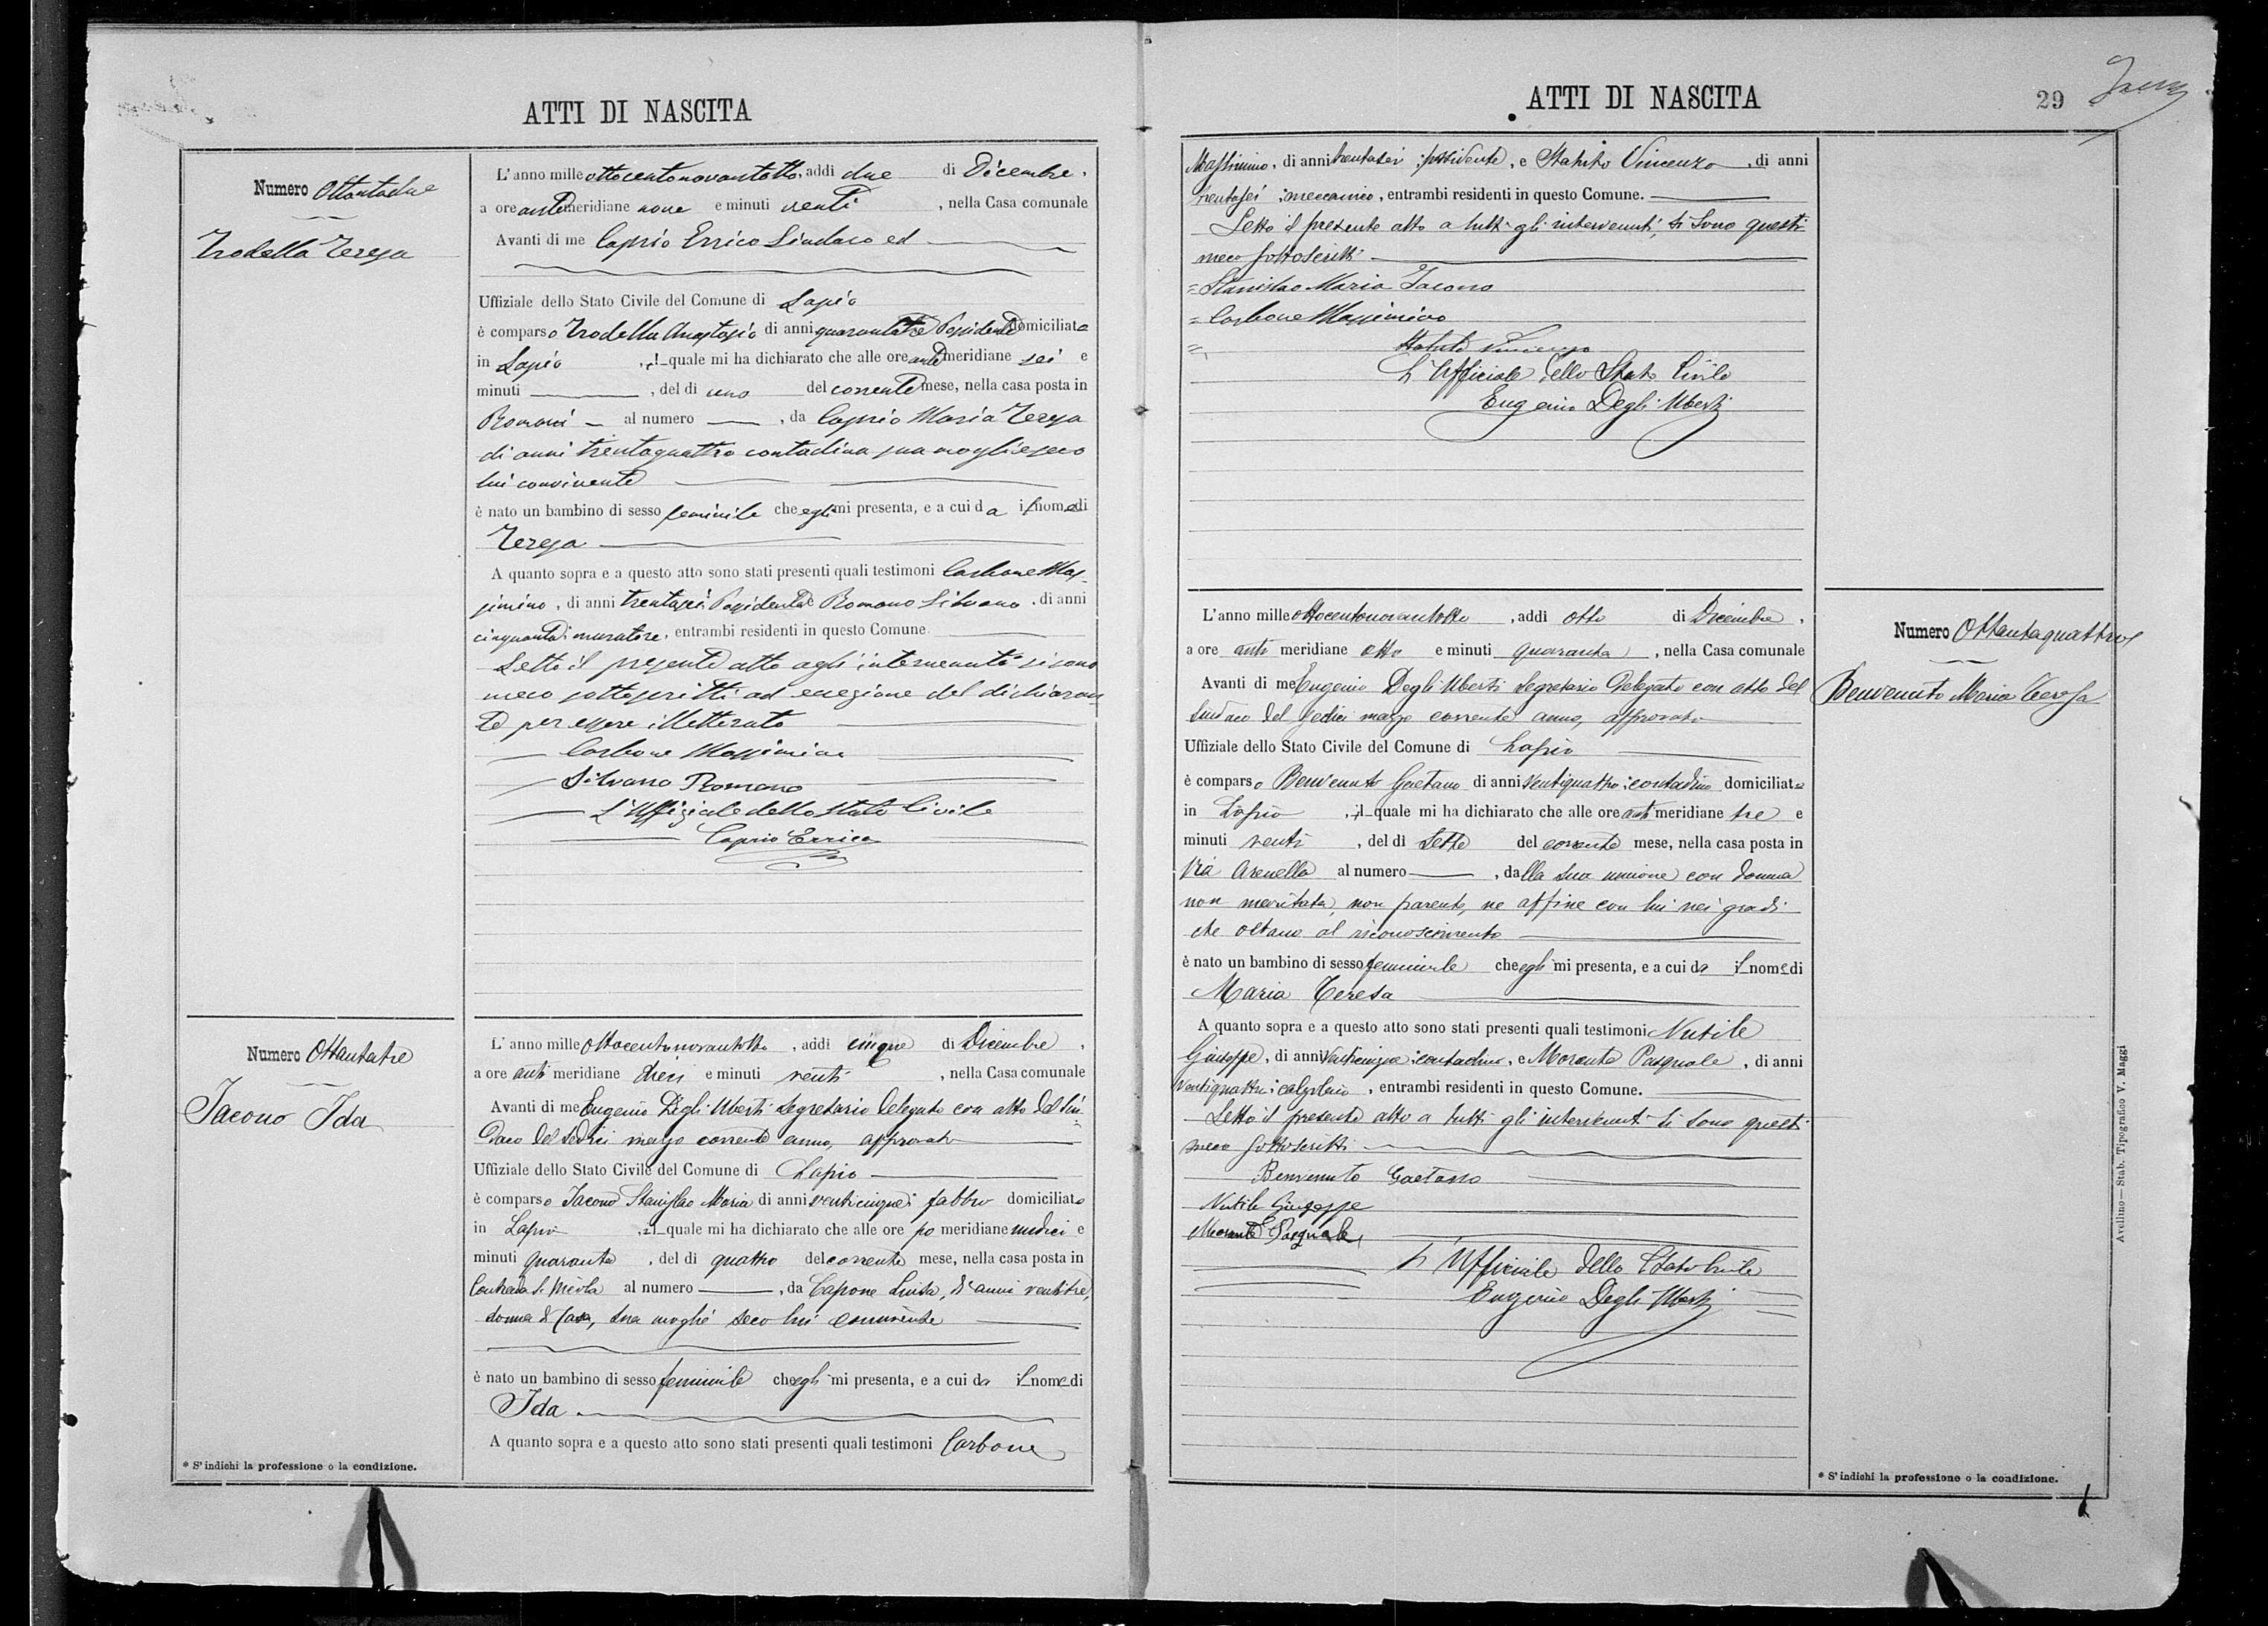 ATTI DI NASCITA
Numero Ottantadue
Trodella Teresa
L'anno mille ottocentonovantotto, addi due di Dicembre,
a ore antemeridiane nove e minuti venti, nella Casa comunale
Avanti di me Caprio Errico Sindaco ed
Uffiziale dello Stato Civile del Comune di Lapio
è comparso Trodella Anastasio di anni quarantatre Possidente domiciliato
in Lapio, il quale mi ha dichiarato che alle ore antemeridiane sei e
minuti, del dì uno del corrente mese, nella casa posta in
Romani al numero, da Caprio Maria Teresa
di anni trentaquattro contadina sua moglie seco
lui convivente
è nato un bambino di sesso feminile che egli mi presenta, e a cui da il nome di
Teresa
A quanto sopra e a questo atto sono stati presenti quali testimoni Carbone Mas-
simino, di anni trentasei Possidente e Romano Silvano, di anni
cinquanta muratore, entrambi residenti in questo Comune.
Letto il presente atto agli intervenuti si sono
meco sottoscritti ad eccezione del dichiaran
te per essere illetterato
Carbone Massimino
Silvano Romano
L'Uffiziale dello Stato Civile
Caprio Errico
Numero Ottantatre
Iacono Ida
L'anno mille ottocentonovantotto, addi cinque di Dicembre,
a ore antimeridiane dieci e minuti venti, nella Casa comunale
Avanti di me Eugenio Degli Uberti Segretario Delegato con atto del Sin=
daco del sedici marzo corrente anno, approvato
Uffiziale dello Stato Civile del Comune di Lapio
è comparso Iacono Stanislao Maria di anni venticinque; fabbro domiciliato
in Lapio, il quale mi ha dichiarato che alle ore pomeridiane undici e
minuti quaranta, del dì quattro del corrente mese, nella casa posta in
Contrada S. Nicola al numero, da Capone Luisa, di anni ventitre,
donna di Casa, sua moglie seco lui convivente
è nato un bambino di sesso feminile che egli mi presenta, e a cui da il nome di
Ida
A quanto sopra e a questo atto sono stati presenti quali testimoni Carbone
* S'indichi la professione o la condizione.
ATTI DI NASCITA
29
Massimino, di anni trentasei; possidente, e Statuto Vincenzo, di anni
trentasei; meccanico, entrambi residenti in questo Comune.
Letto il presente atto a tutti gli intervenuti, si sono questi
meco sottoscritti
= Stanislao Maria Iacono
= Carbone Massimino
= Statuto Vincenzo
L'Ufficiale dello Stato Civile
Eugenio Degli Uberti
L'anno mille ottocentonovantotto, addì otto di Dicembre,
a ore antimeridiane otto e minuti quaranta, nella Casa comunale
Avanti di me Eugenio Degli Uberti Segretario Delegato con atto del
Sindaco del sedici marzo corrente anno, approvato
Uffiziale dello Stato Civile del Comune di Lapio
è comparso Benvenuto Gaetano di anni ventiquattro; contadino domiciliato
in Lapio, il quale mi ha dichiarato che alle ore antimeridiane tre e
minuti venti, del dì sette del corrente mese, nella casa posta in
Via Arenella al numero, dalla sua unione con donna
non maritata, non parente, ne affine con lui nei gradi
che ostano al riconoscimento
è nato un bambino di sesso feminile che egli mi presenta, e a cui da il nome di
Maria Teresa
A quanto sopra e a questo atto sono stati presenti quali testimoni Nutile
Giuseppe, di anni venticinque; contadino, e Morante Pasquale, di anni
ventiquattro; calzolaio, entrambi residenti in questo Comune.
Letto il presente atto a tutti gli intervenuti si sono questi
meco sottoscritti
Benvenuto Gaetano
Nutile Giuseppe
Morante Pasquale
L'Ufficiale dello Stato Civile
Eugenio Degli Uberti
Numero Ottantaquattro
Benvenuto Maria Teresa
* S'indichi la professione o la condizione.
Avellino — Stab. Tipografico V. Maggi